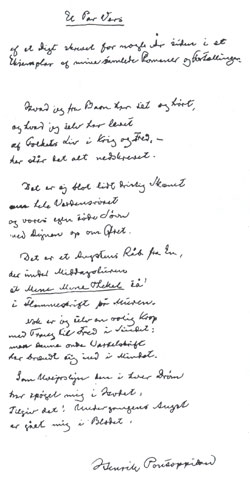 Et Par Vers
af et digt skrevet for nogle År siden i et
Eksemplar af mine samlede Romaner og Fortællinger.
Hvad jeg fra Barn har set og hørt,
og hvad jeg selv har levet
af Folkets Liv i Krig og Fred, –
her står det alt nedskrevet.
Det er ej blot lidt
hele Verdensrøret
og vores egen Søvn
ved Dignen op om Øret.
Det er et Angstens Råb fra En,
der under Middagsluren
et Mene Mene Thekel så
i Flammeskrift på Muren.
Nok er jeg selv en rolig Krop
med Trang til Fred i Sindet;
men denne onde Varselskrift
har brændt sig ind i Mindet.
Som Uvejrslyn den i hver Drøm
har spøget mig i Hovdet,
Tilgiv det! Undergangens Angst
er gået mig i Blodet.
Henrik Pontoppidan